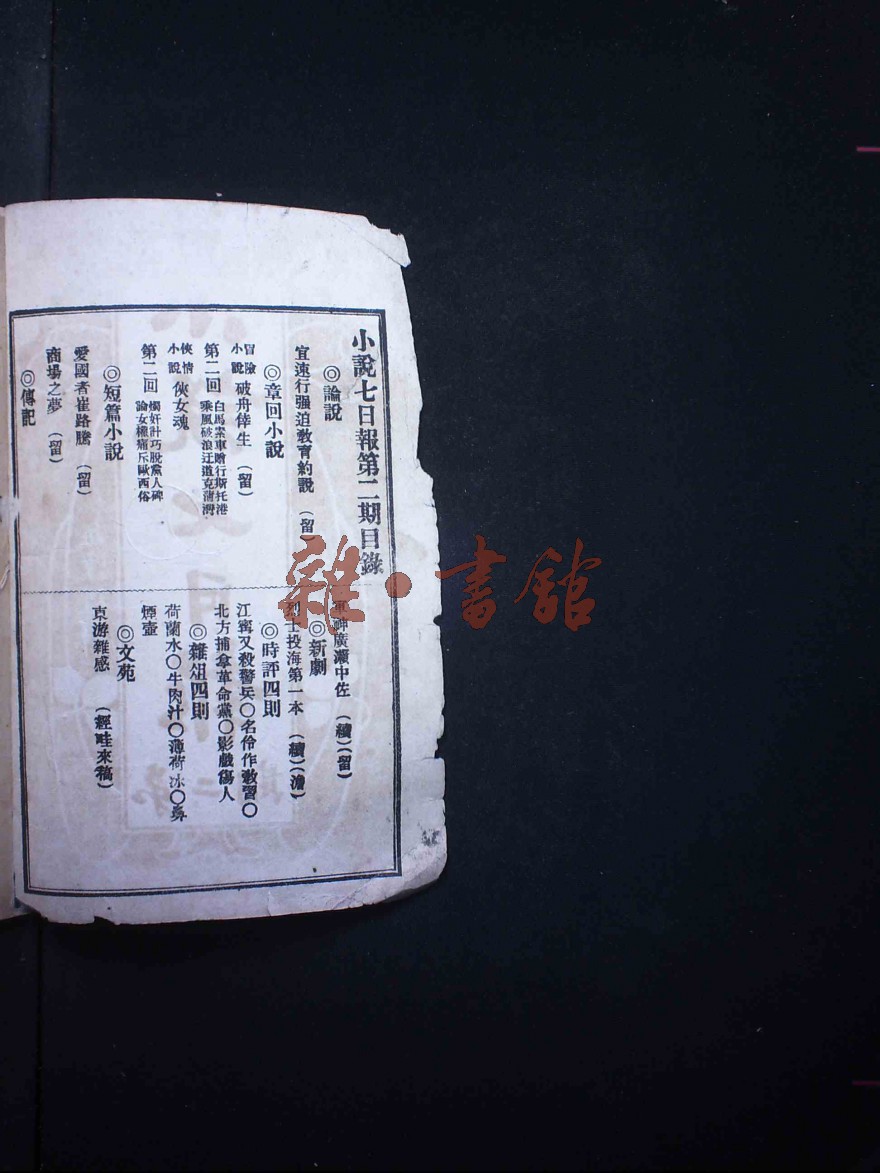 小說七日報第二期目錄
◎論說
宜速行强迫敎育約說 (留)
◎章回小說
冒險小說 破舟倖生 (留)
第二回 白馬素車贈行斯托港
乘風破浪迂道克蒲灣
俠情小說 俠女魂
第二回 燭奸計巧脫黨人碑
論女權痛斥歐西俗
◎短篇小說
愛國者崔路騰 (留)
商場之夢 (留)
◎傳記
軍神廣瀨中佐 (續)(留)
◎新劇
烈士投海第一本 (續)(澹)
◎時評四則
江寗又殺警兵〇名伶作敎習〇
北方捕拿革命黨〇影戲傷人
◎雜俎四則
荷蘭水〇牛肉汁〇薄荷冰〇鼻
煙壺
◎文苑
東游雜感 (經畦來稿)
雜·書館